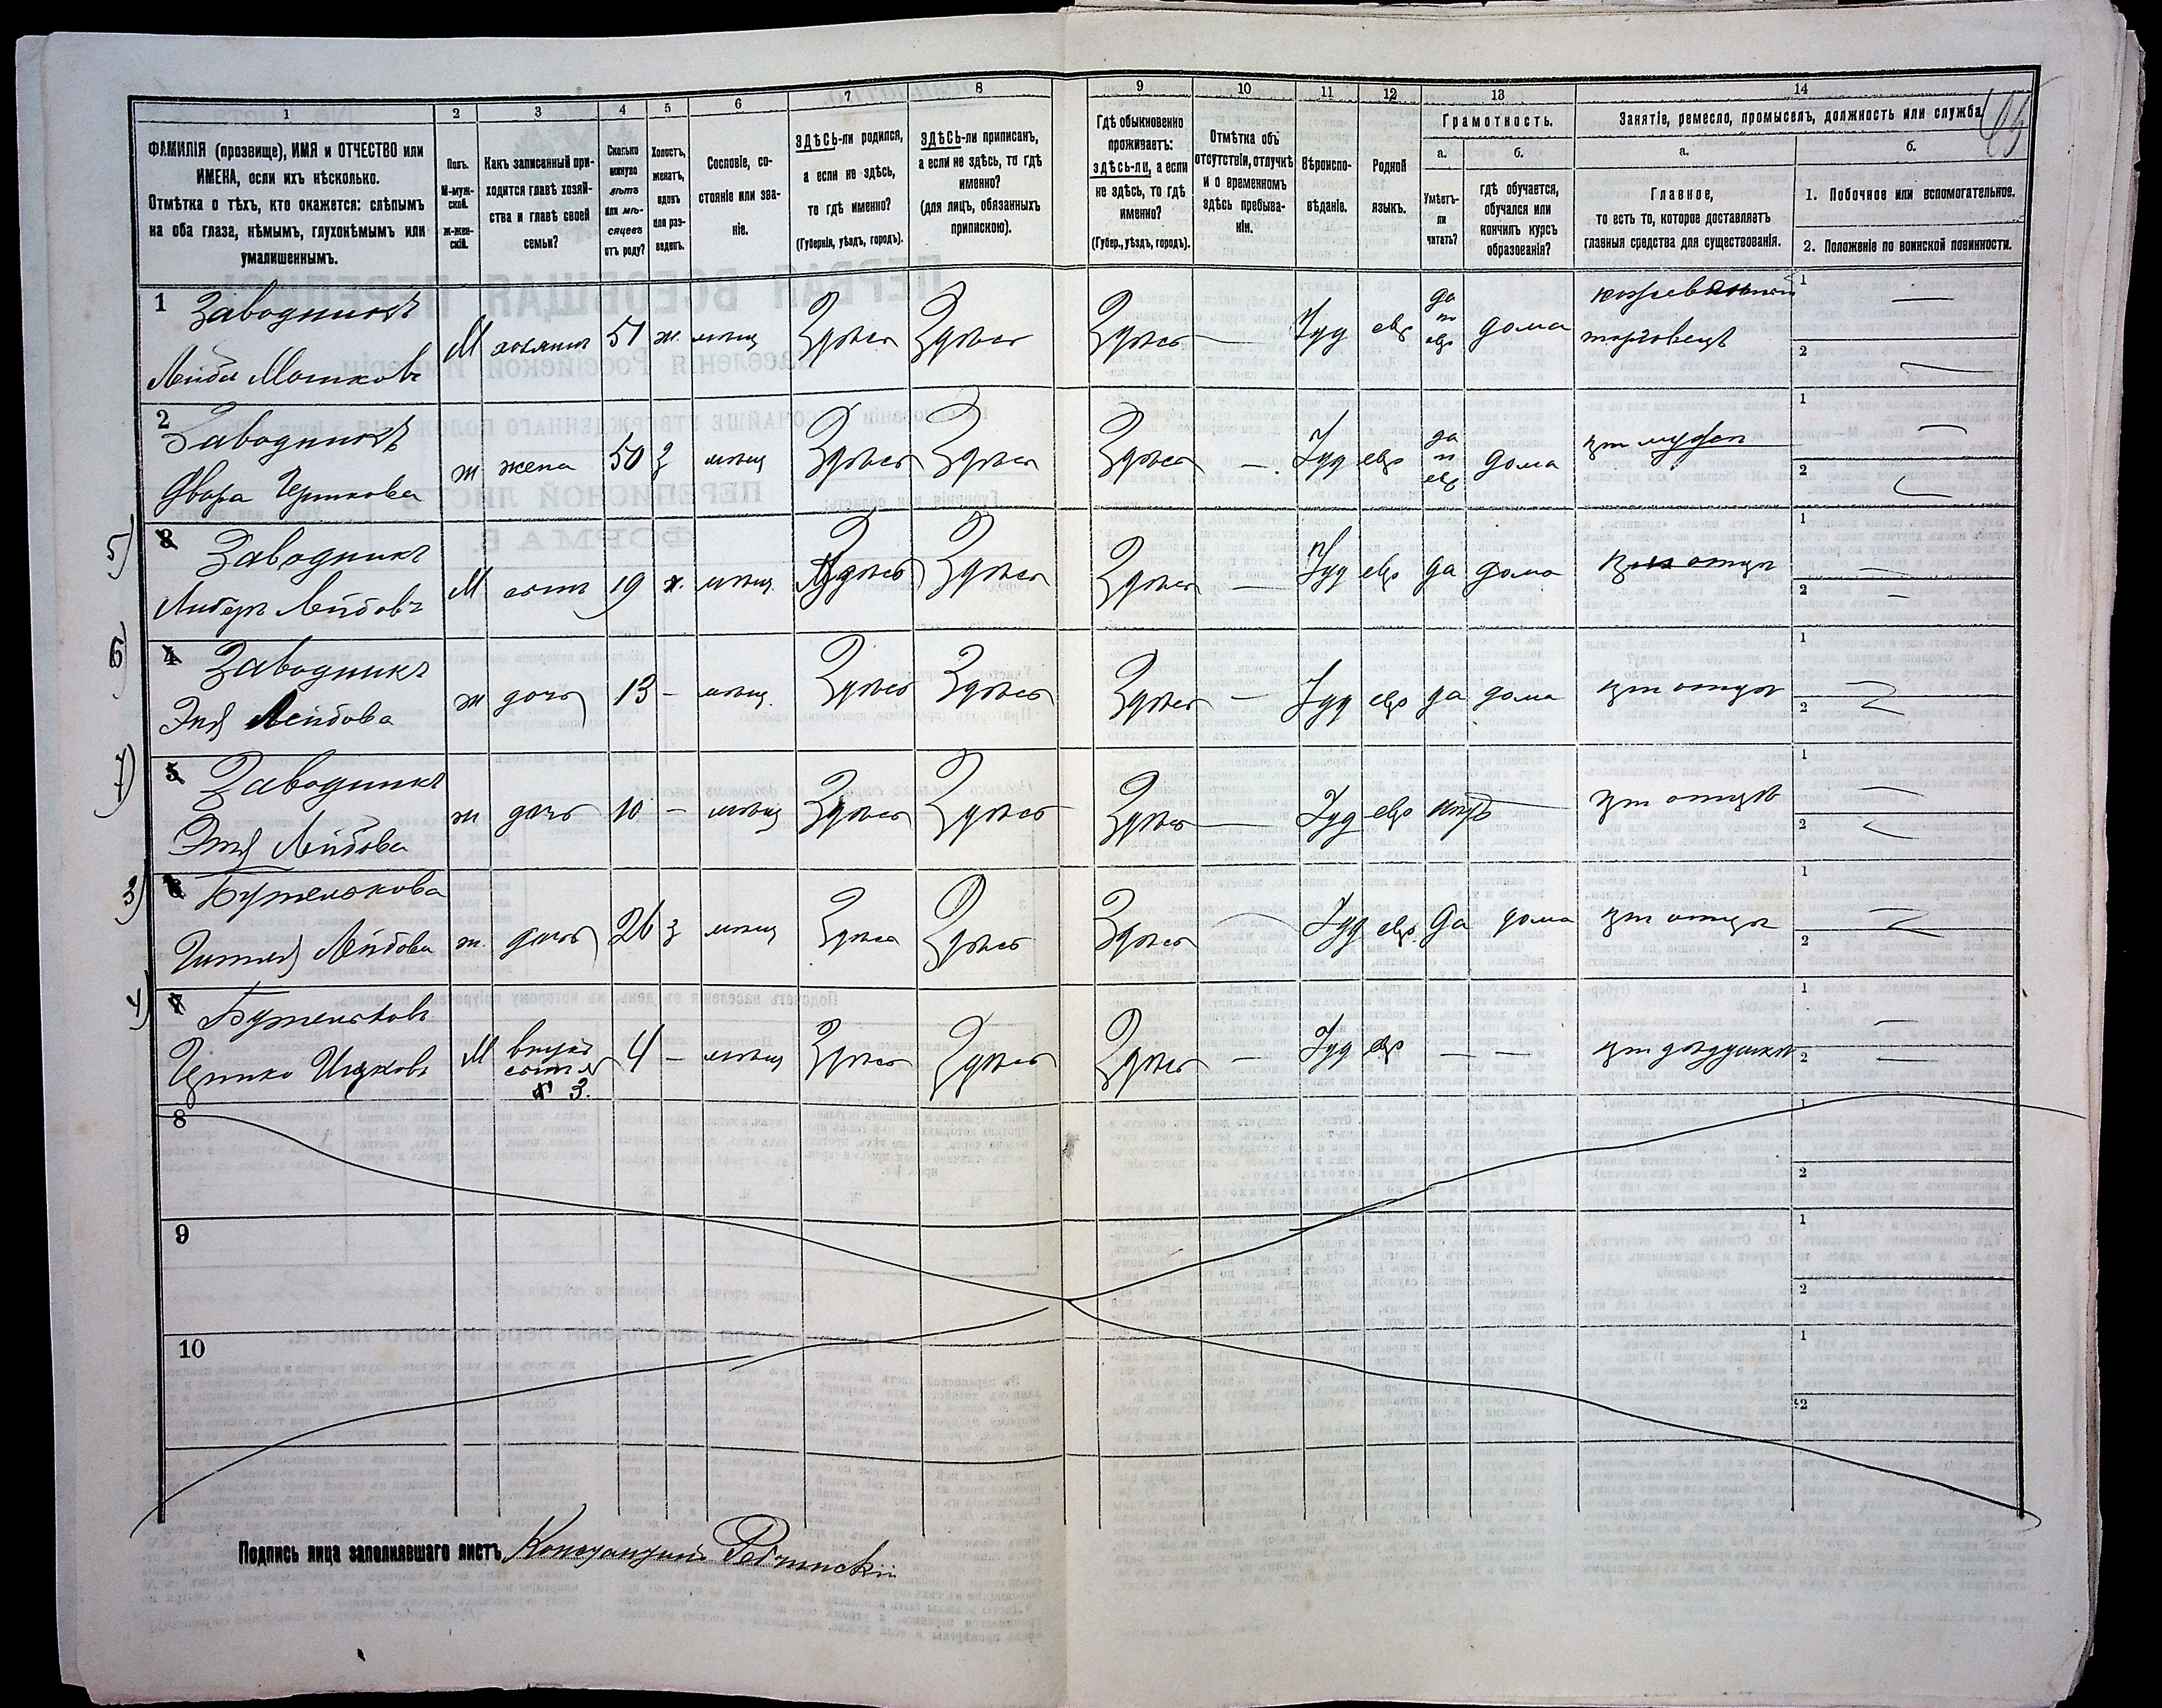 1 2 3 4 5 6 7 8 9 10 11 12 13 14
ФАМИЛІЯ (прозвище), ИМЯ и ОТЧЕСТВО или
ИМЕНА, если ихъ нѣсколько.
Отмѣтка о тѣхъ, кто окажется: слѣпымъ
на оба глаза, нѣмымъ, глухонѣмымъ или
умалишеннымъ.
Полъ.
М-муж-
ской.
Ж-жен-
скій.
Какъ записанный при-
ходится главѣ хозяй-
ства и главѣ своей
семьи?
Сколько
минуло
лѣтъ
или мѣ-
сяцевъ
отъ роду?
Холостъ,
женатъ,
вдовъ
или раз-
веденъ.
Сословіе, со-
стояніе или зва-
ніе.
ЗДѢСЬ-ли родился,
а если не здѣсь,
то гдѣ именно?
(Губернія, уѣздъ, городъ).
ЗДѢСЬ-ли приписанъ,
а если не здѣсь, то гдѣ
именно?
(для лицъ, обязанныхъ
припискою).
Гдѣ обыкновенно
проживаетъ:
здѣсь-ли, а если
не здѣсь, то гдѣ
именно?
(Губер., уѣздъ, городъ).
Отмѣтка объ
отсутствіи, отлучкѣ
и о временномъ
здѣсь пребыва-
ніи.
Вѣроиспо-
вѣданіе.
Родной
языкъ.
Грамотность.
а.
Умѣетъ-
ли
читать?
б.
гдѣ обучается,
обучался или
кончилъ курсъ
образованія?
Занятіе, ремесло, промыселъ, должность или служба
а.
Главное,
то есть то, которое доставляетъ
главныя средства для существованія.
б.
1. Побочное или вспомогательное.
2. Положеніе по воинской повинности.
1 Заводникъ
Лейба Мошковъ
М хозяинъ 51 ж. мѣщ Здѣсь Здѣсь Здѣсь — Іуд евр да по евр дома
торговецъ
1 —
2 —
2 Заводникъ
Двора
ж жена 50 з мѣщ Здѣсь Здѣсь Здѣсь — Іуд евр да п евр дома при мужѣ
1 —
2 —
5) 3 Заводникъ
Лейбовъ
М сынъ 19 х. мѣщ. Здѣсь Здѣсь Здѣсь — Іуд евр да дома при отцѣ
1 —
2 —
6) 4 Заводникъ
Лейбова
ж дочь 13 — мѣщ. Здѣсь Здѣсь Здѣсь — Іуд евр да дома при отцѣ
1 —
2
7) 5 Заводникъ
Лейбова
ж дочь 10 — мѣщ Здѣсь Здѣсь Здѣсь — Іуд евр нѣтъ — при отцѣ
1 —
2 —
3) 6 Бутелькова
Гитля Лейбова
ж. дочь 26 з мѣщ Здѣсь Здѣсь Здѣсь — Іуд евр. да дома при отцѣ
1 —
2
4) 7 Бутельковъ
Ицковъ
М внукъ
сынъ
№ 3.
4 — мѣщ Здѣсь Здѣсь Здѣсь — Іуд евр — — при дѣдушкѣ
1 —
2 —
8 1
2
9 1
2
10 1
2
Подпись лица заполнявшаго листъ